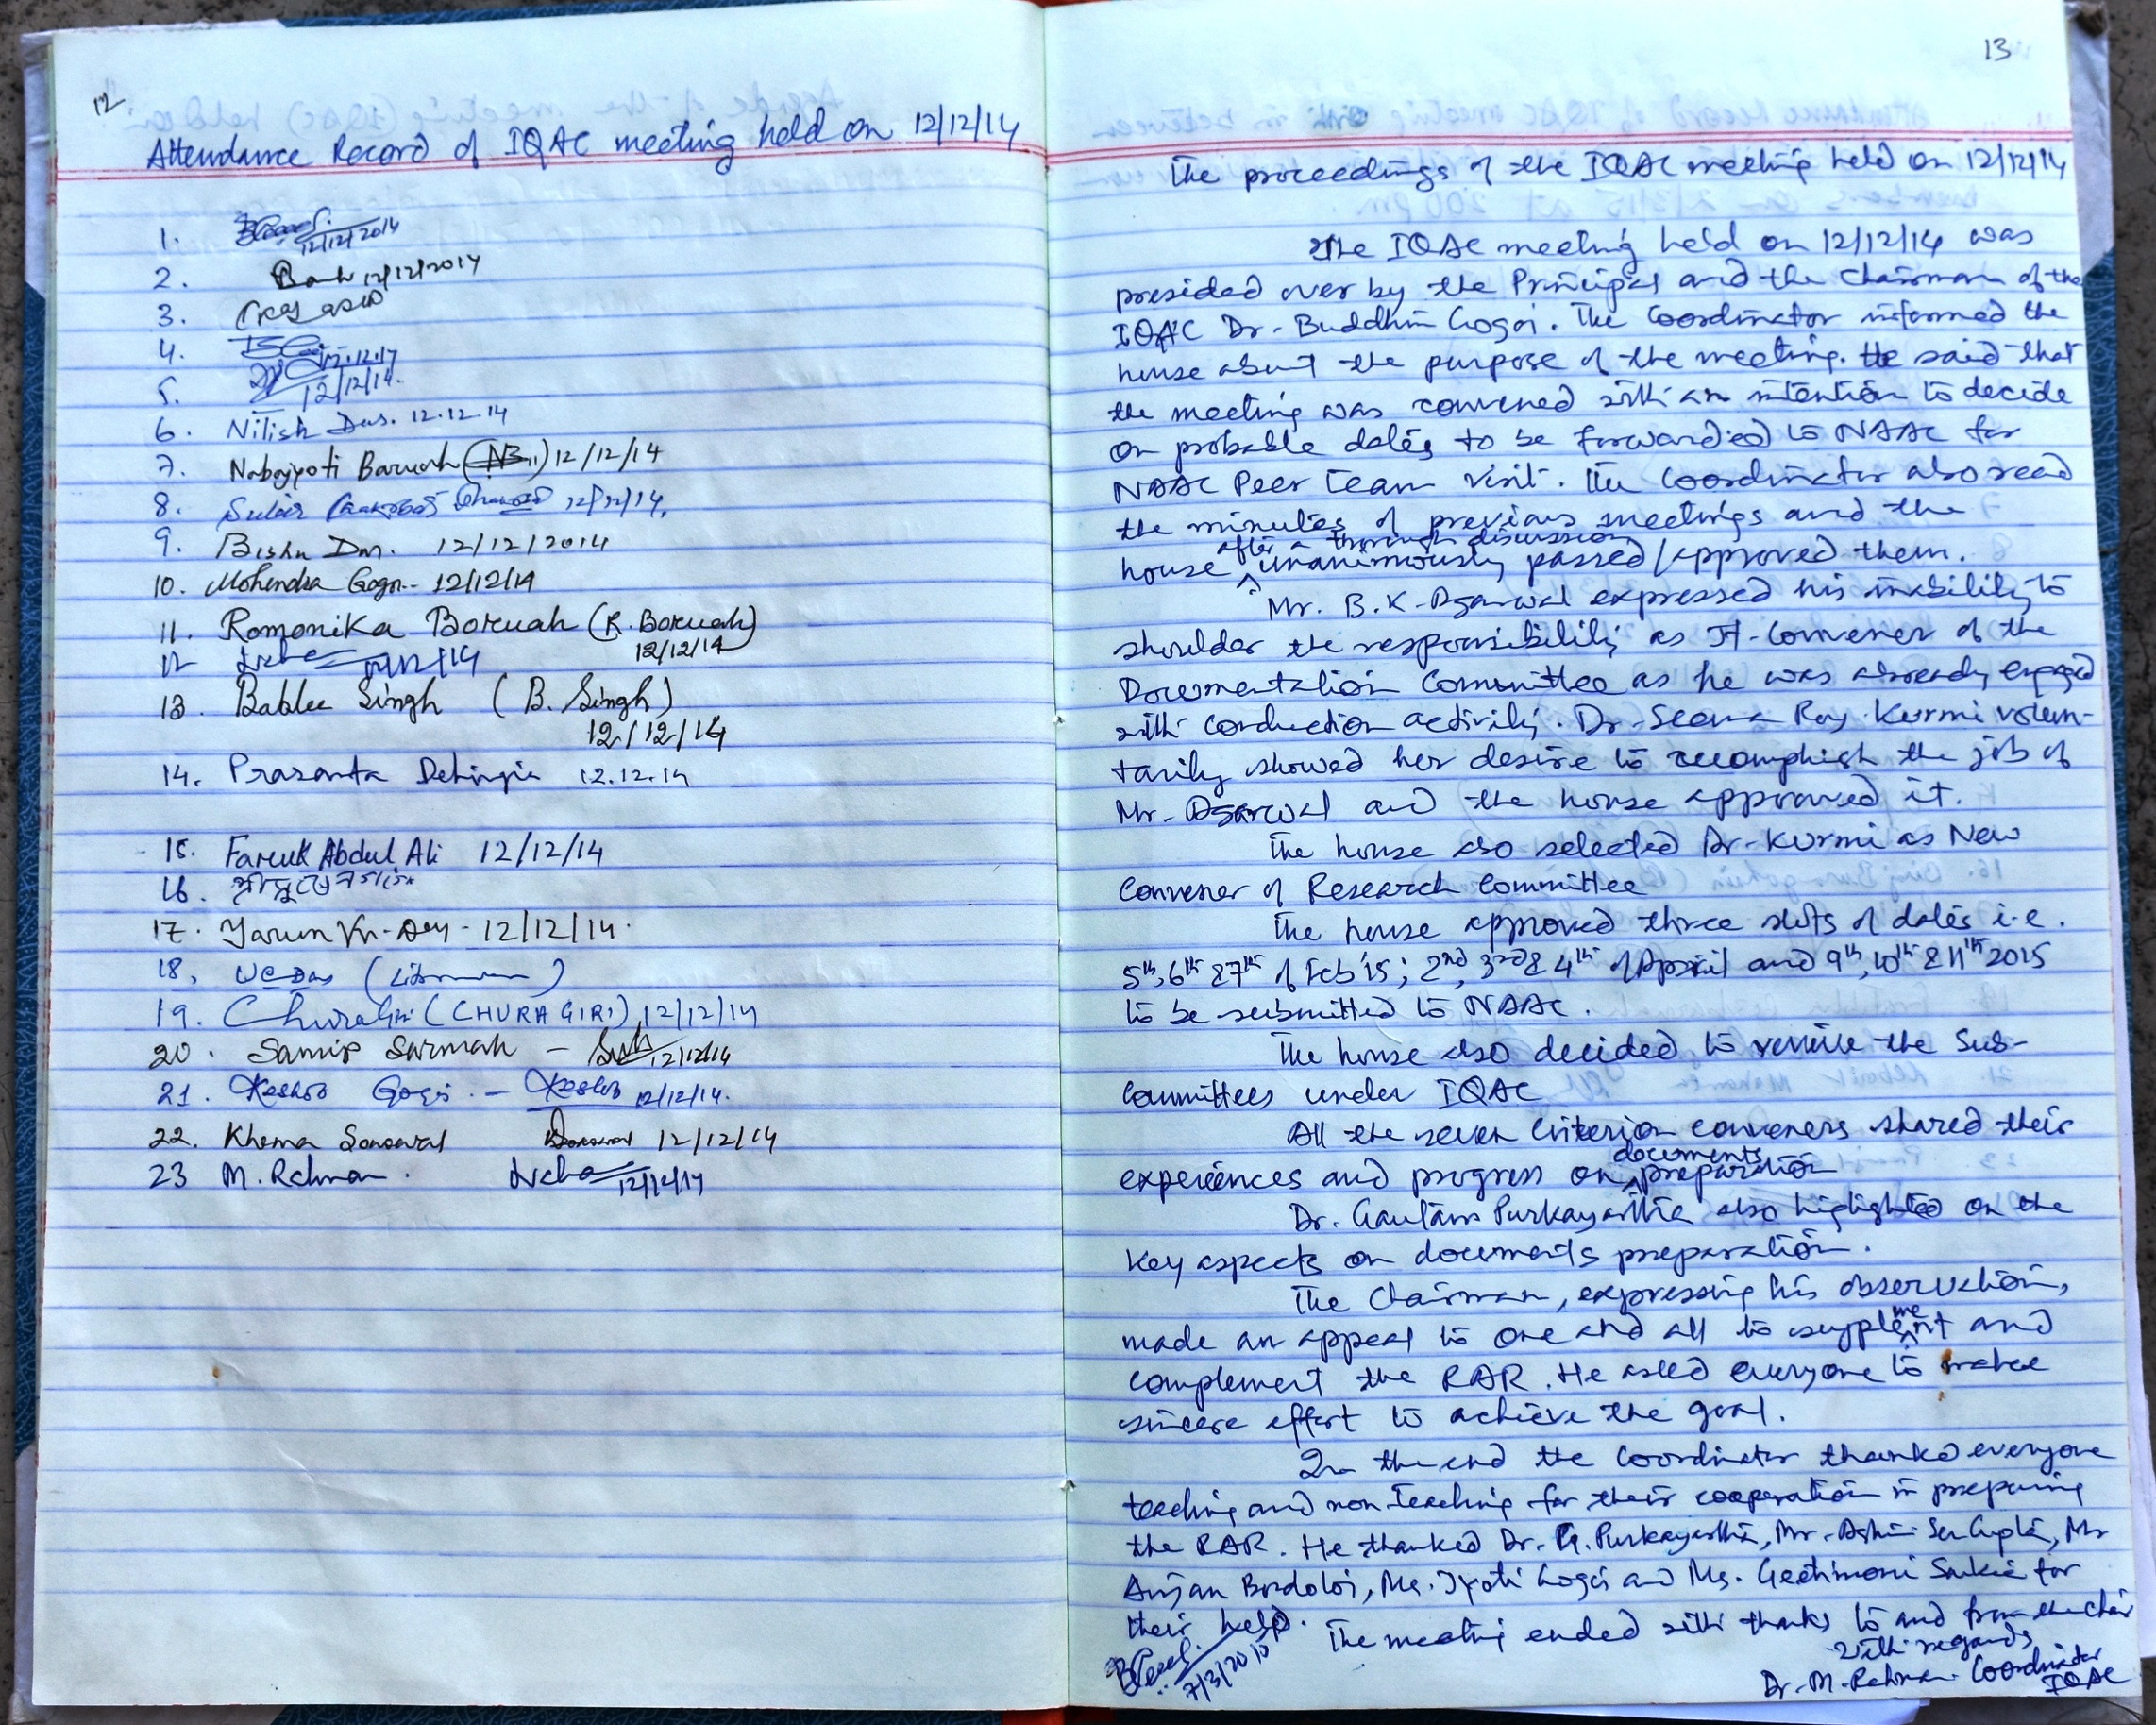 12
Attendance Record of IQAC meeting held on 12/12/14
1. 12/12/2014
2. 12/12/2014
3.
4. 12.12.14
5. 12/12/14.
6. Nitish Das. 12.12.14
7. Nabajyoti Baruah (NB) 12/12/14
8. 12/12/14.
9. Bishu Das. 12/12/2014
10. Mohendra Gogoi 12/12/14
11. Romonika Boruah (R. Boruah)
12/12/14
12 12/12/14
13. Bablee Singh (B. Singh)
12/12/14
14. Prasanta Dehingia 12.12.14
15. Faruk Abdul Ali 12/12/14
16.
17. Tarun Kr. Dey - 12/12/14.
18. (Librarian)
19. Chura Giri (CHURA GIRI) 12/12/14
20. Samip Sarmah - 12/12/14
21. Keshob Gogoi. - Keshob 12/12/14.
22. Khema Sonowal Sonowal 12/12/14
23 M. Rehman. 12/12/14
13
The proceedings of the IQAC meeting held on 12/12/14
The IQAC meeting held on 12/12/14 was
presided over by the Principal and the Chairman of the
IQAC Dr. Buddhin Gogoi. The Coordinator informed the
house about the purpose of the meeting. He said that
the meeting was convened with an intention to decide
on probable dates to be forwarded to NAAC for
NAAC Peer Team Visit. The Coordinator also read
the minutes of previous meetings and the
house after a thorough discussion unanimously passed/approved them.
Mr. B.K. Agarwal expressed his inability to
shoulder the responsibility as Jt-Convener of the
Documentation Committee as he was already engaged
with conduction activity. Dr. Seema Ray Kurmi volun-
tarily showed her desire to accomplish the job of
Mr. Agarwal and the house approved it.
The house also selected Dr. Kurmi as New
Convener of Research Committee
The house approved three slots of dates i.e.
5th, 6th & 7th of Feb'15; 2nd, 3rd & 4th of April and 9th, 10th & 11th 2015
to be submitted to NAAC.
The house also decided to revise the Sub-
Committees under IQAC
All the seven Criterion conveners shared their
experiences and progress on documents preparation
Dr. Gautam Purkayastha also highlighted on the
key aspects on documents preparation.
The Chairman, expressing his observation,
made an appeal to one and all to supplement and
complement the RAR. He asked everyone to make
sincere effort to achieve the goal.
In the end the Coordinator thanked everyone
teaching and non teaching for their cooperation in preparing
the RAR. He thanked Dr. G. Purkayastha, Mr. Ashim Sen Gupta, Mr
Anjan Bordoloi, Ms. Jyoti Gogoi and Ms. Geetimoni Saikia for
their help.
The meeting ended with thanks to and from the chair
with regards
Dr. M. Rehman. Coordinator
IQAC